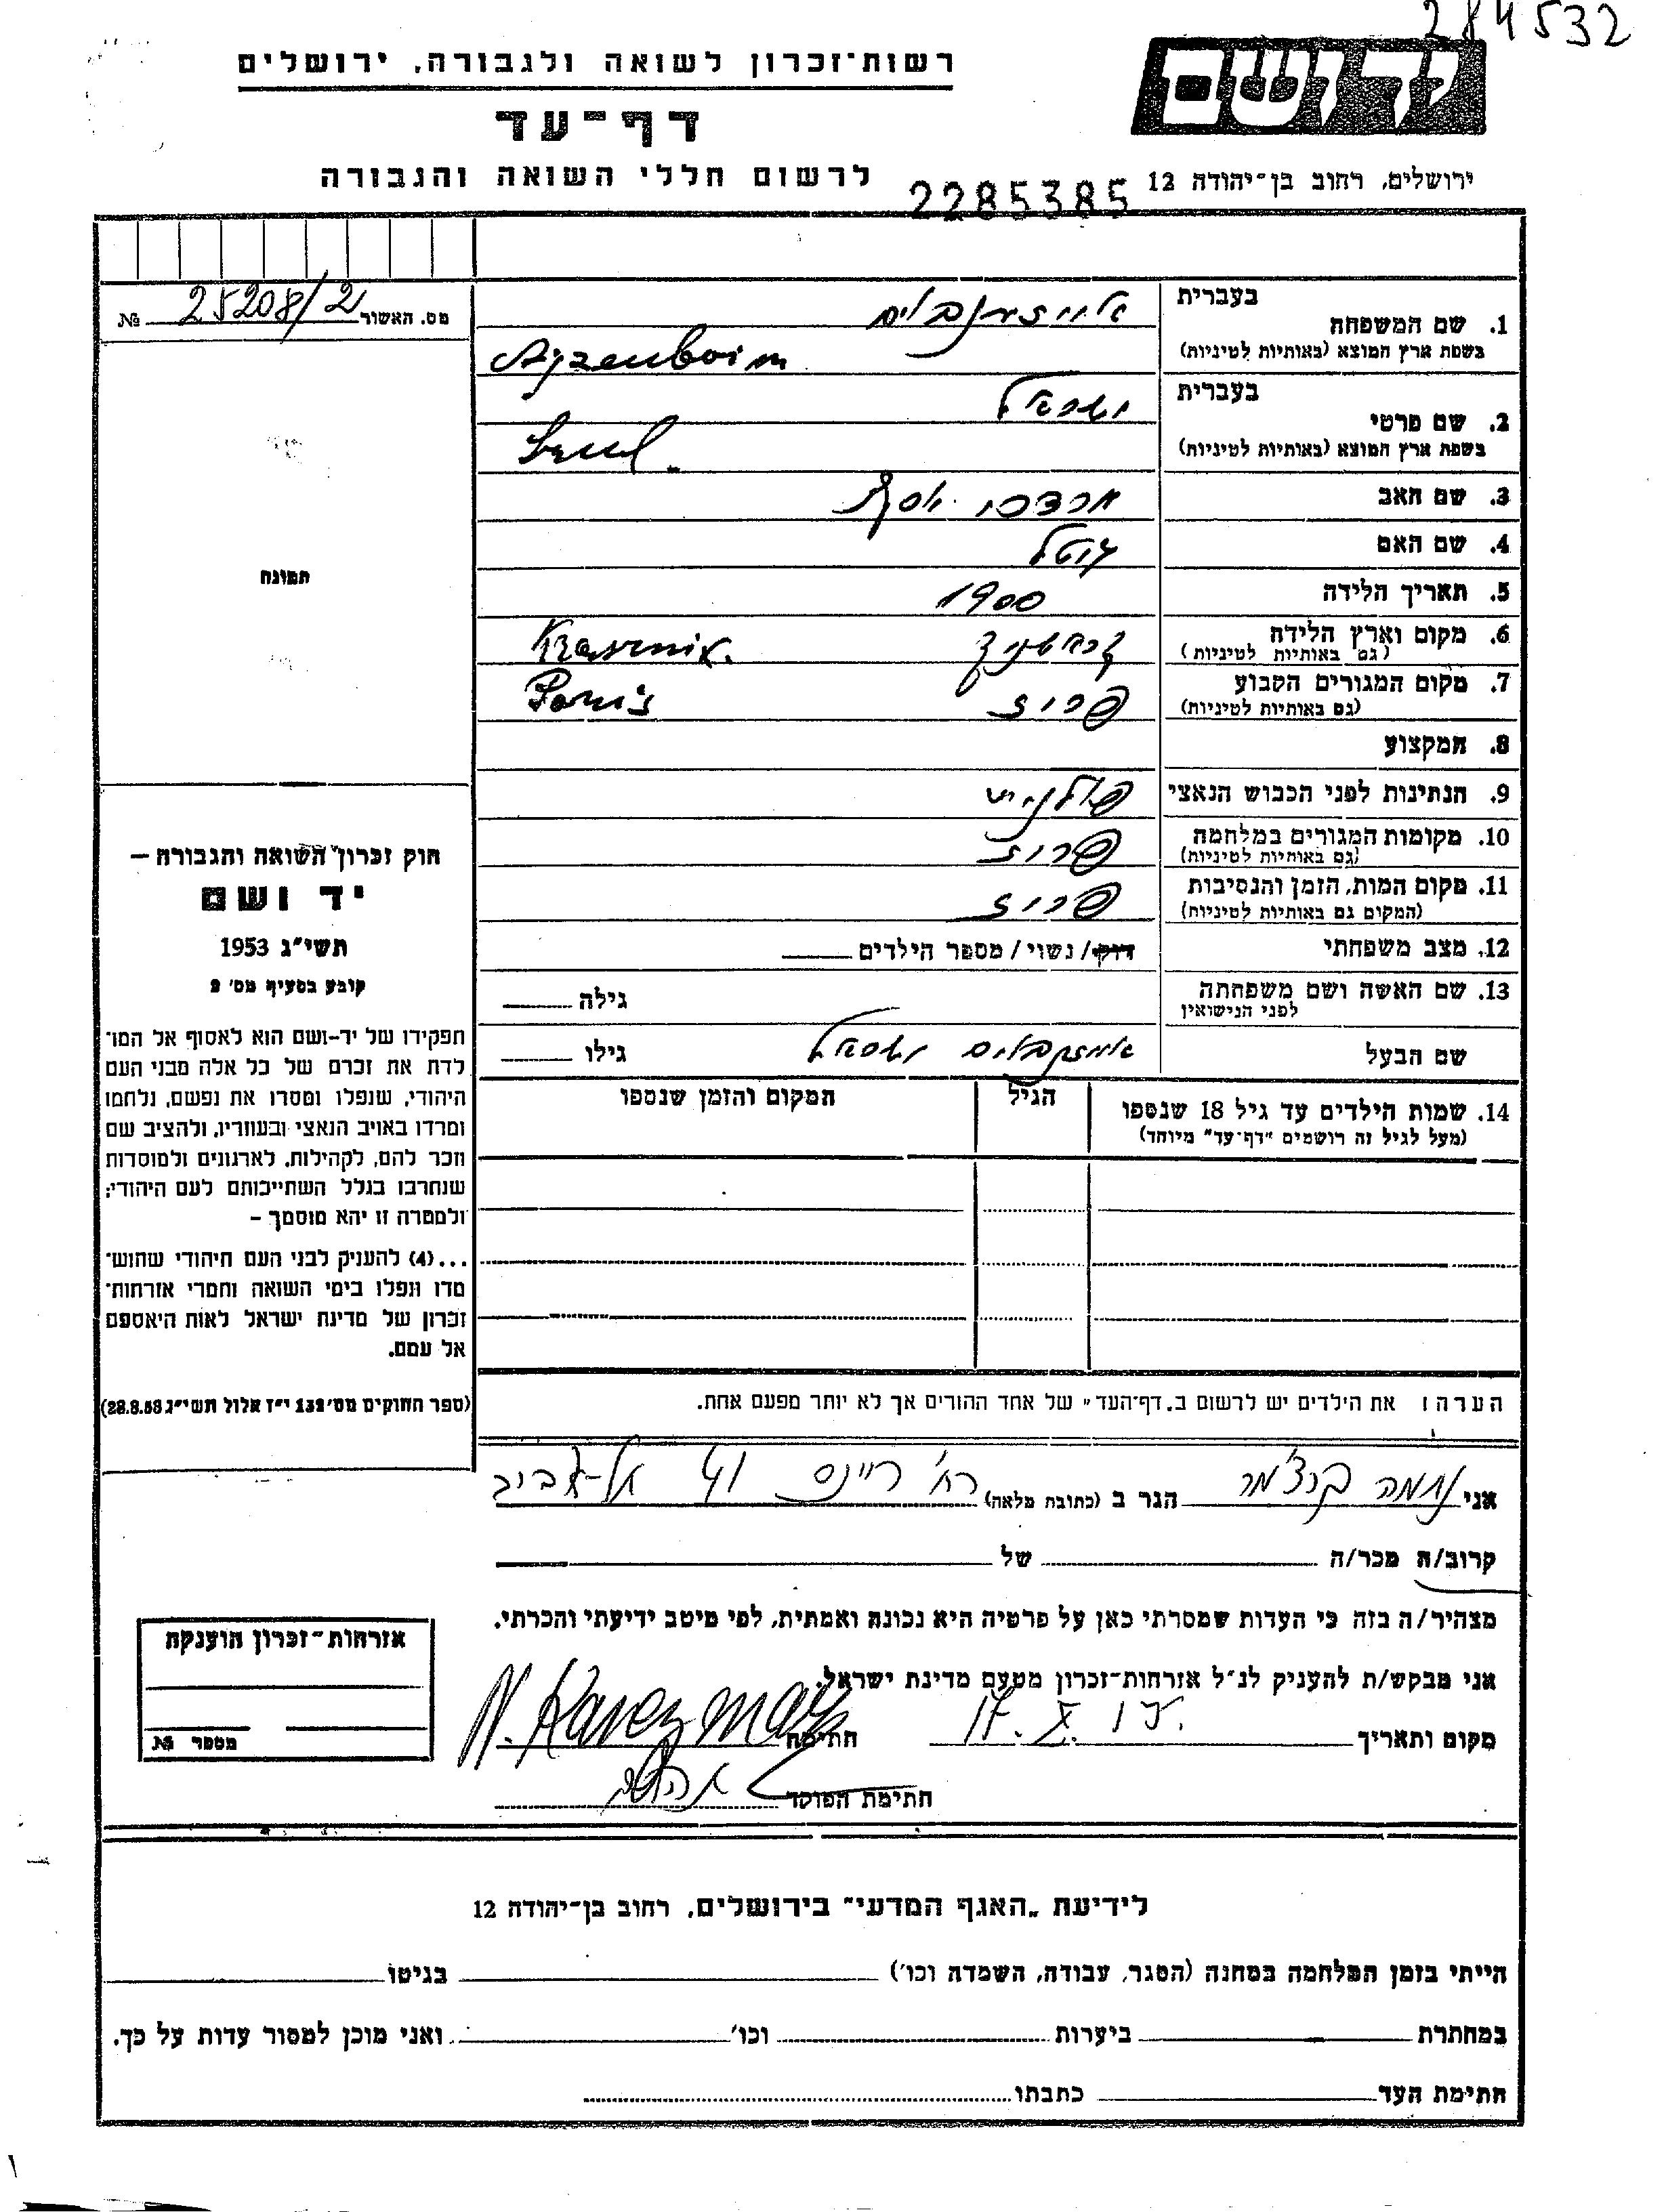 284532
רשות־זכרון לשואה ולגבורה, ירושלים
ידושם
דף־עד
לרשום חללי השואה והגבורה
2285385
ירושלים, רחוב בן־יהודה 12
מס. האשור 25208/2 №
1. שם המשפחה
בעברית
בשפת ארץ המוצא (באותיות לטיניות)
אייזענבוים
Ajzenboim
2. שם פרטי
בעברית
בשפת ארץ המוצא (באותיות לטיניות)
ישראל
3. שם האב מרדכי יוסף
4. שם האם
5. תאריך הלידה 1900
6. מקום וארץ הלידה
(גם באותיות לטיניות)
קראשניק Krasnik.
7. מקום המגורים הקבוע
(גם באותיות לטיניות)
פריז Paris
8. המקצוע
9. הנתינות לפני הכבוש הנאצי
10. מקומות המגורים במלחמה
(גם באותיות לטיניות)
פריז
11. מקום המות, הזמן והנסיבות
(המקום גם באותיות לטיניות)
פריז
12. מצב משפחתי רווק/ נשוי / מספר הילדים
13. שם האשה ושם משפחתה
לפני הנישואין
גילה
שם הבעל אייזנבוים ישראל גילו
14. שמות הילדים עד גיל 18 שנספו
(מעל לגיל זה רושמים "דף־עד" מיוחד)
הגיל
המקום והזמן שנספו
הערה: את הילדים יש לרשום ב„דף־העד" של אחד ההורים אך לא יותר מפעם אחת.
תמונה
חוק זכרון השואה והגבורה –
יד ושם
תשי"ג 1953
קובע בסעיף מס' 2
תפקידו של יד-ושם הוא לאסוף אל המו־
לדת את זכרם של כל אלה מבני העם
היהודי, שנפלו ומסרו את נפשם, נלחמו
ומרדו באויב הנאצי ובעוזריו, ולהציב שם
וזכר להם, לקהילות, לארגונים ולמוסדות
שנחרבו בגלל השתייכותם לעם היהודי;
ולמטרה זו יהא מוסמך –
...(4) להעניק לבני העם היהודי שהוש־
מדו ונפלו בימי השואה והמרי אזרחות־
זכרון של מדינת ישראל לאות היאספם
אל עמם.
(ספר החוקים מס' 132 י"ז אלול תשי"ג 28.8.53)
אני נחמה הגר ב (כתובת מלאה) רח' ריינס תל-אביב
קרוב/ה מכר/ה של
מצהיר/ה בזה כי העדות שמסרתי כאן על פרטיה היא נכונה ואמתית, לפי מיטב ידיעתי והכרתי.
אני מבקש/ת להעניק לנ"ל אזרחות־זכרון מטעם מדינת ישראל.
מקום ותאריך חתימה
חתימת הפוקד
אזרחות־זכרון הוענקה
מספר №
לידיעת „האגף המדעי" בירושלים, רחוב בן־יהודה 12
הייתי בזמן המלחמה במחנה (הסגר, עבודה, השמדה וכו') בגיטו
במחתרת ביערות וכו' ואני מוכן למסור עדות על כך.
חתימת העד כתבתו